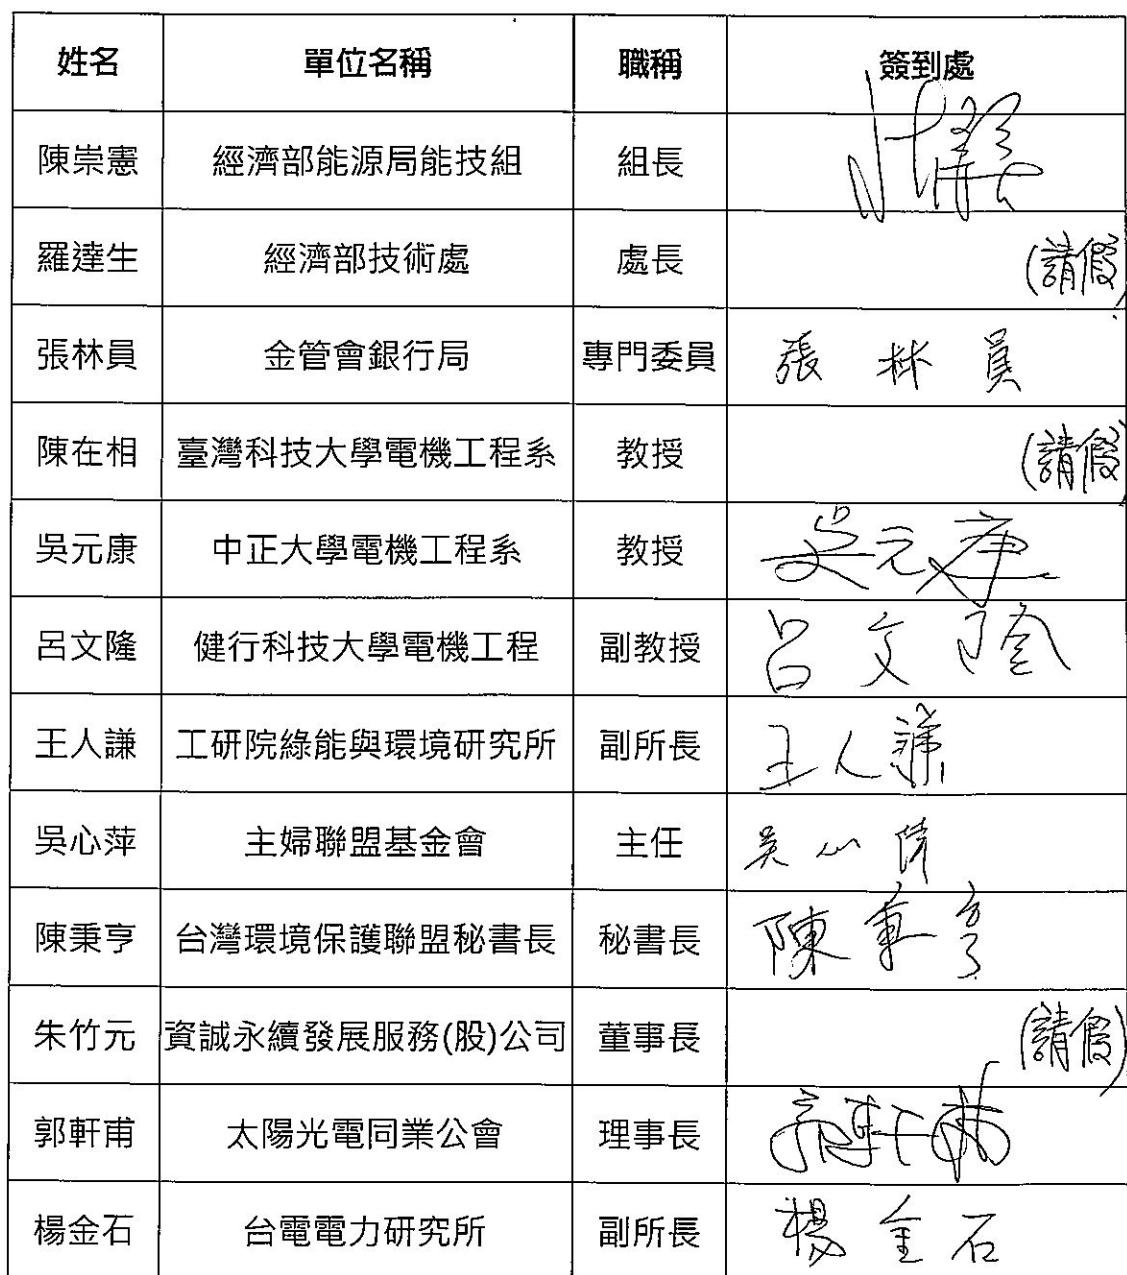 姓名 單位名稱 職稱 簽到處
陳崇憲 經濟部能源局能技組 組長
羅達生 經濟部技術處 處長 (請假)
張林員 金管會銀行局 專門委員 張林員
陳在相 臺灣科技大學電機工程系 教授 (請假)
吳元康 中正大學電機工程系 教授 吳元康
呂文隆 健行科技大學電機工程 副教授 呂文隆
王人謙 工研院綠能與環境研究所 副所長 王人謙
吳心萍 主婦聯盟基金會 主任 吳心萍
陳秉亨 台灣環境保護聯盟秘書長 秘書長 陳秉亨
朱竹元 資誠永續發展服務(股)公司 董事長 (請假)
郭軒甫 太陽光電同業公會 理事長 郭軒甫
楊金石 台電電力研究所 副所長 楊金石